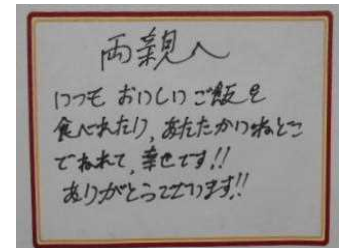 両親へ
いつも おいしい ご飯を
食べれたり、あたたかいねどこ
でねれて、幸せです!!
ありがとうございます!!